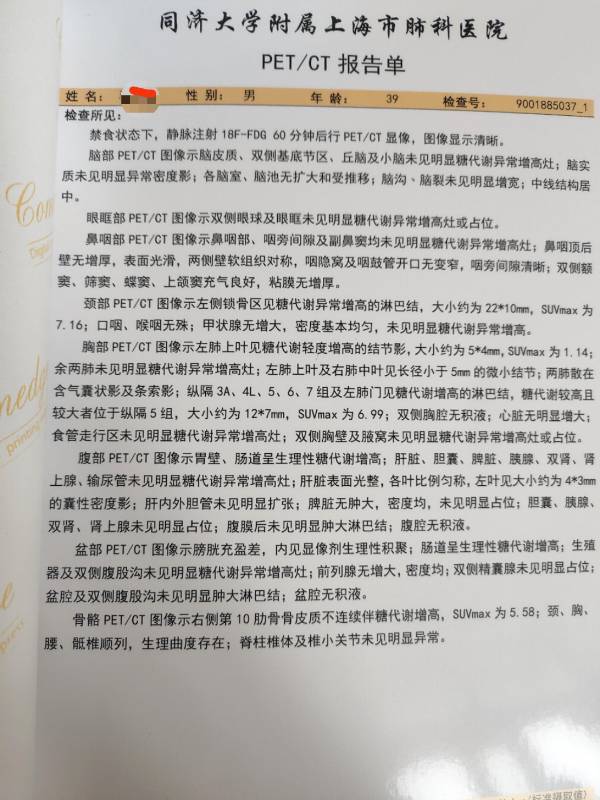 同济大学附属上海市肺科医院
PET/CT 报告单
姓 名： 性 别： 男 年 龄： 39 检查号： 9001885037_1
检查所见：
禁食状态下，静脉注射 18F-FDG 60 分钟后行 PET/CT 显像，图像显示清晰。
脑部 PET/CT 图像示脑皮质、双侧基底节区、丘脑及小脑未见明显糖代谢异常增高灶；脑实
质未见明显异常密度影；各脑室、脑池无扩大和受推移；脑沟、脑裂未见明显增宽；中线结构居
中。
眼眶部 PET/CT 图像示双侧眼球及眼眶未见明显糖代谢异常增高灶或占位。
鼻咽部 PET/CT 图像示鼻咽部、咽旁间隙及副鼻窦均未见明显糖代谢异常增高灶；鼻咽顶后
壁无增厚，表面光滑，两侧壁软组织对称，咽隐窝及咽鼓管开口无变窄，咽旁间隙清晰；双侧额
窦、筛窦、蝶窦、上颌窦充气良好，粘膜无增厚。
颈部 PET/CT 图像示左侧锁骨区见糖代谢异常增高的淋巴结，大小约为 22*10mm，SUVmax 为
7.16；口咽、喉咽无殊；甲状腺无增大，密度基本均匀，未见明显糖代谢异常增高。
胸部 PET/CT 图像示左肺上叶见糖代谢轻度增高的结节影，大小约为 5*4mm，SUVmax 为 1.14；
余两肺未见明显糖代谢异常增高灶；左肺上叶及右肺中叶见长径小于 5mm 的微小结节；两肺散在
含气囊状影及条索影；纵隔 3A、4L、5、6、7 组及左肺门见糖代谢增高的淋巴结，糖代谢较高且
较大者位于纵隔 5 组，大小约为 12*7mm，SUVmax 为 6.99；双侧胸腔无积液；心脏无明显增大；
食管走行区未见明显糖代谢异常增高灶；双侧胸壁及腋窝未见明显糖代谢异常增高灶或占位。
腹部 PET/CT 图像示胃壁、肠道呈生理性糖代谢增高；肝脏、胆囊、脾脏、胰腺、双肾、肾
上腺、输尿管未见明显糖代谢异常增高灶；肝脏表面光整，各叶比例匀称，左叶见大小约为 4*3mm
的囊性密度影；肝内外胆管未见明显扩张；脾脏无肿大，密度均，未见明显占位；胆囊、胰腺、
双肾、肾上腺未见明显占位；腹膜后未见明显肿大淋巴结；腹腔无积液。
盆部 PET/CT 图像示膀胱充盈差，内见显像剂生理性积聚；肠道呈生理性糖代谢增高；生殖
器及双侧腹股沟未见明显糖代谢异常增高灶；前列腺无增大，密度均；双侧精囊腺未见明显占位；
盆腔及双侧腹股沟未见明显肿大淋巴结；盆腔无积液。
骨骼 PET/CT 图像示右侧第 10 肋骨骨皮质不连续伴糖代谢增高，SUVmax 为 5.58；颈、胸、
腰、骶椎顺列，生理曲度存在；脊柱椎体及椎小关节未见明显异常。